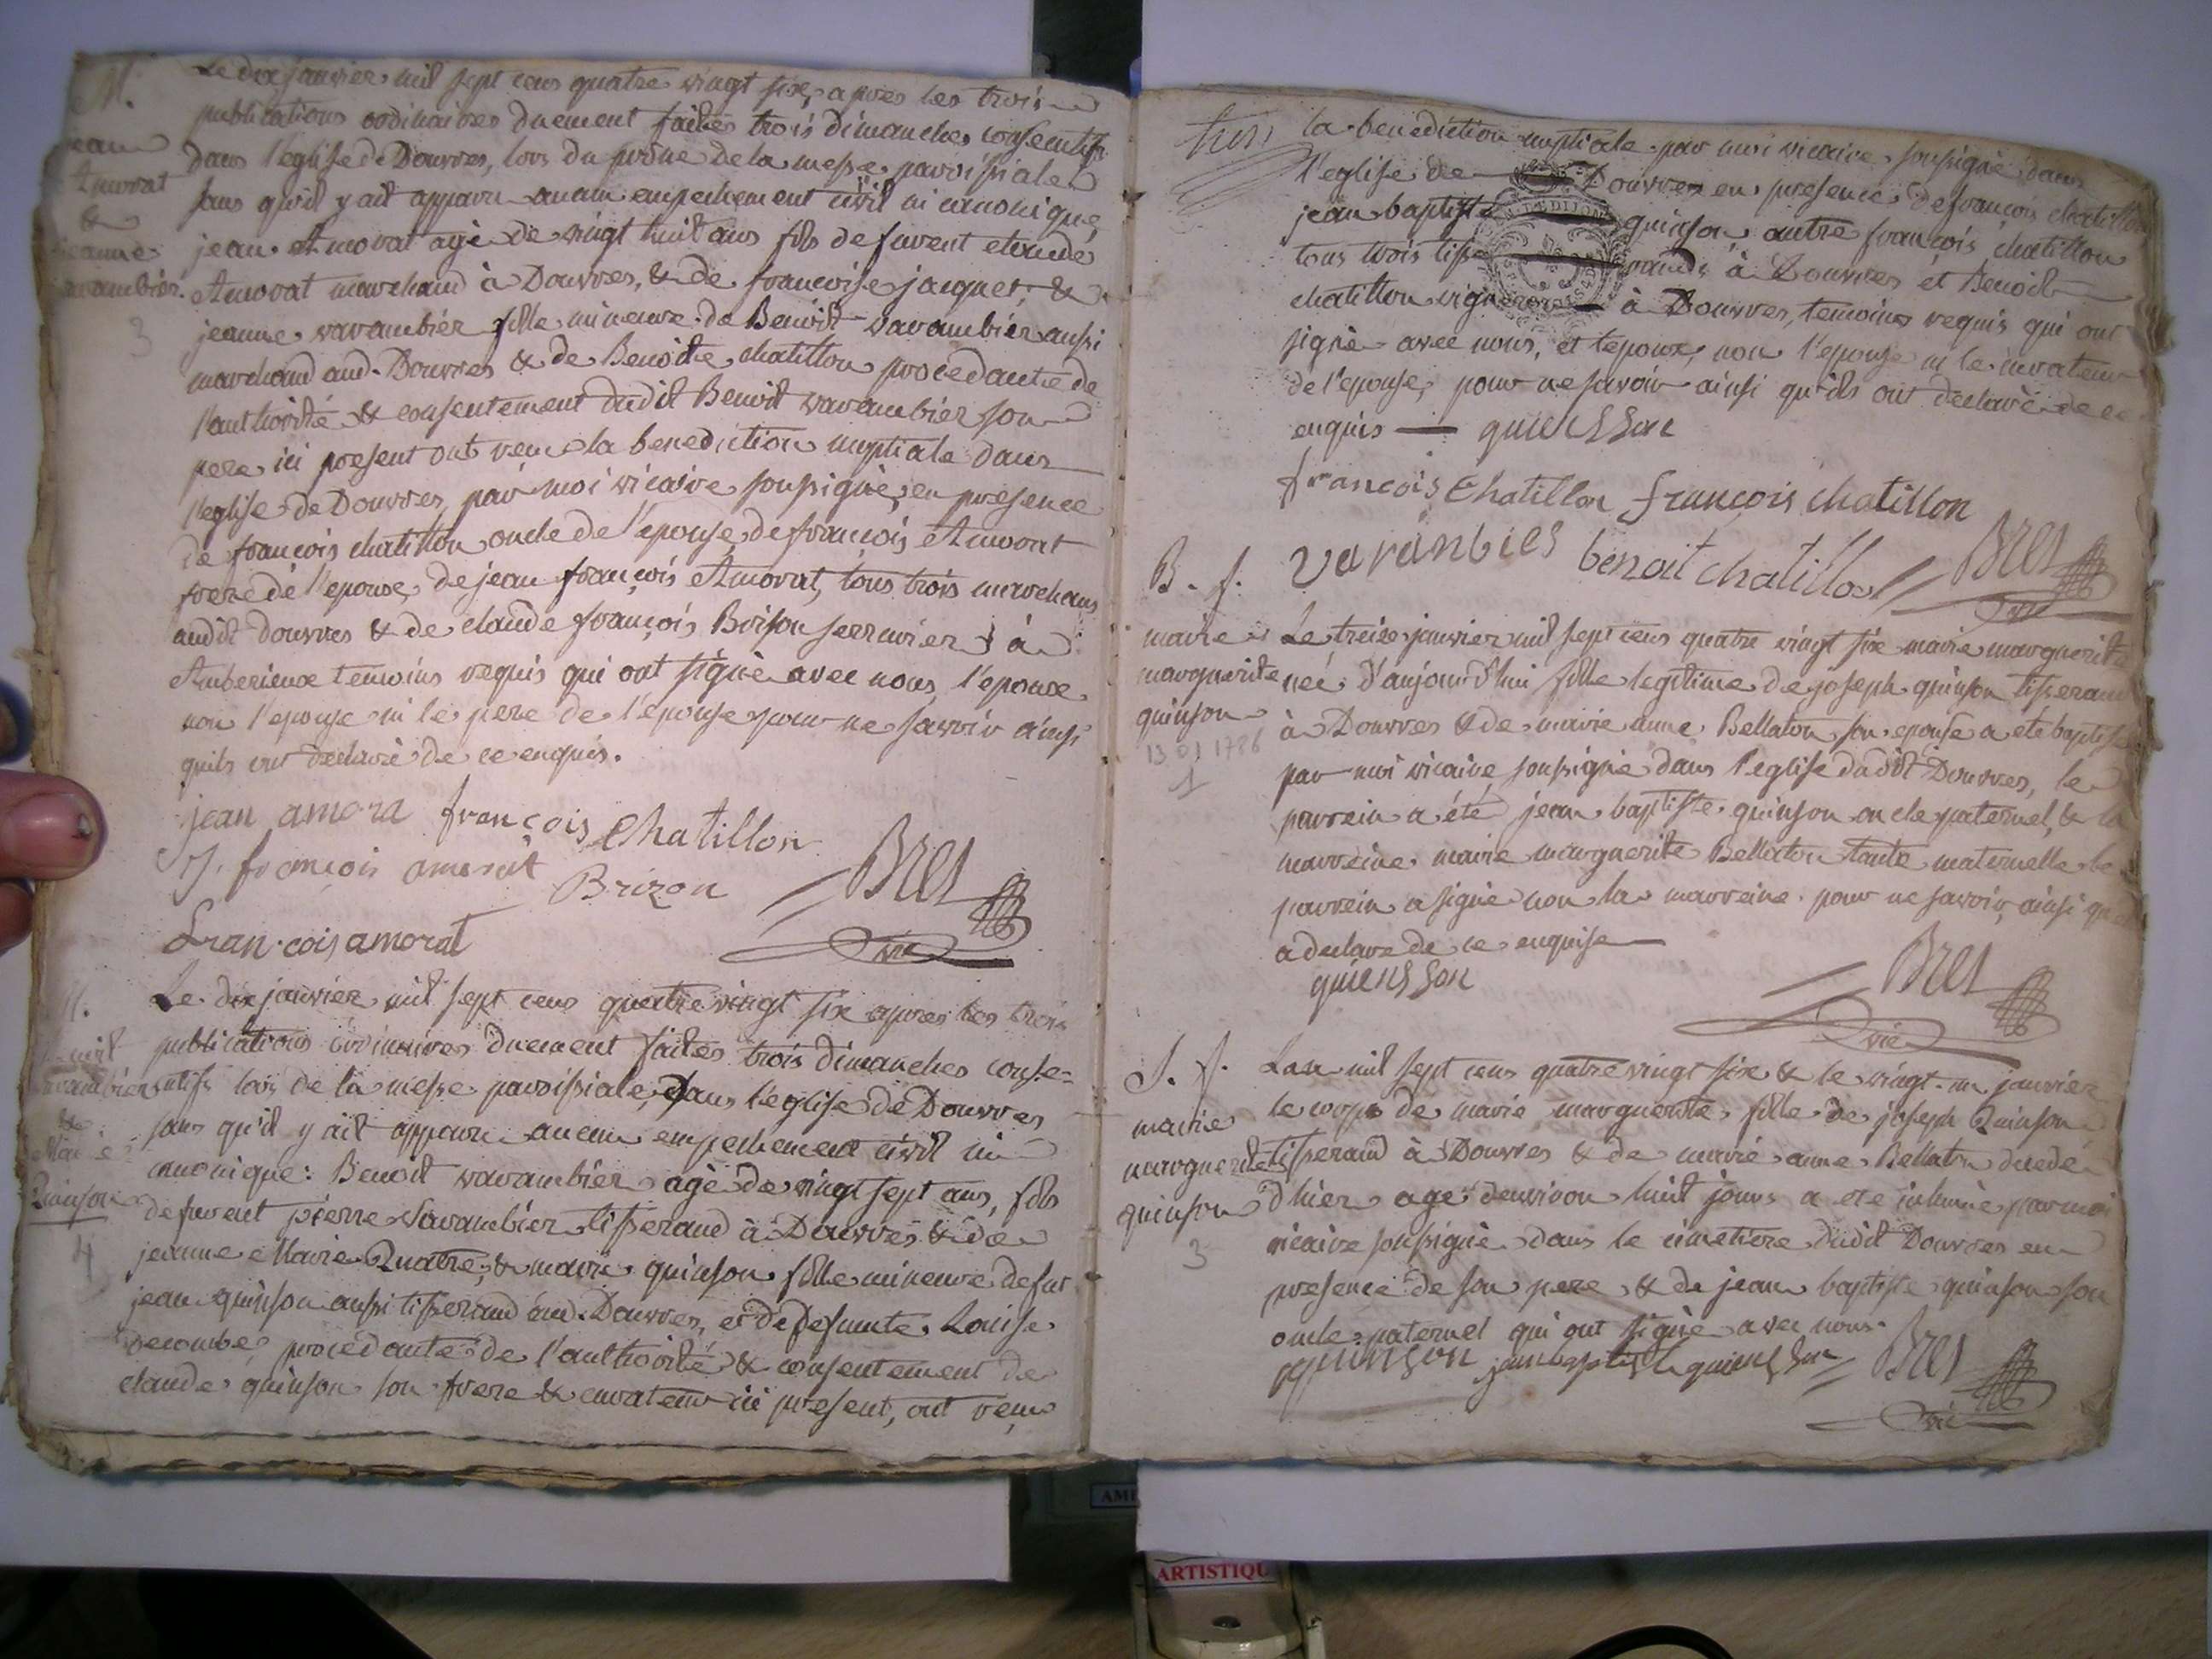 M.
jean
Amorat
&
jeanne
varambier.
3
Le dix janvier mil sept cens quatre vingt six, apres les trois
publications ordinaires duement faites trois dimanches consecutifs
dans l'eglise de Douvres, lors du prône de la messe paroissiale
sans qu'il y ait apparu aucun empechement civil ni canonique,
jean Amorat agé de vingt huit ans fils de fuvent claude
Amorat marchand à Douvres, & de francoise jacquet, &
jeanne varambier fille mineure de Benoit varambier aussi
marchand aud. Douvres & de Benoite chatillon procedante de
l'authorité & consentement dudit Benoit varambier son
pere ici present ont reçu la benediction nuptiale dans
l'eglise de Douvres, par moi vicaire soussigné, en presence
de françois chatillon oncle de l'epouse, de françois Amorat
frere de l'epoux, de jean françois Amorat, tous trois marchans
audit douvres & de claude françois Brison serrurier à
Amberieux temoins requis qui ont signé avec nous, l'epoux
non l'epouse ni le pere de l'epouse pour ne savoir ainsi
quils ont declaré de ce enquis.
jean amora françois Chatillon
J. francois amorat Brizon Bret
Fran.cois amorat vic
M.
Benoit
varambier
&
Marie
Quinson
4
Le dix janvier mil sept cens quatre vingt six apres les trois
publications ordinaires duement faites trois dimanches conse=
cutifs lors de la messe paroissiale, dans l'eglise de Douvres
sans qu'il y ait apparu aucun empechement civil ni
canonique: Benoit varambier agé de vingt sept ans, fils
de fuvent pierre Varambier tisserand à Douvres & de
jeanne Marie Quatre, & marie quinson fille mineure de fut
jean quinson aussi tisserand aud. Douvres, et de defunte Louise
recombe, procedante de l'authorité & consentement de
claude quinson son frere & curateur ici present, ont reçu
la benediction nuptiale par moi vicaire soussigné dans
l'eglise de Douvres en presence de francois chatillon
jean baptiste quinson autre francois chatillon
tous trois tisserands à Douvres et Benoit
chatillon vigneron à Douvres, temoins requis qui ont
signé avec nous, et l'epoux, non l'epouse ni le curateur
de l'epouse, pour ne savoir ainsi qu'ils ont declaré de ce
enquis — quienSSon
françois Chatillon françois chatillon
varanbier benoit chatillon Bret
vic
B. f.
marie
marguerite
quinson
13 01 1786
1
Le treize janvier mil sept cens quatre vingt six marie marguerite
neé d'aujourd'hui fille legitime de joseph quinson tisserand
à Douvres & de marie anne Bellaton son epouse a eté baptisée
par moi vicaire soussigné dans l'eglise dudit Douvres, le
parrein a été jean baptiste quinson oncle paternel, & la
marreine marie marguerite Bellaton tante maternelle le
parrein a signé non la marreine pour ne savoir, ainsi qu'elle
a declare de ce enquise
quienSSon Bret
vic
S. f.
marie
marguerite
quinson
3
Lan mil sept cens quatre vingt six & le vingt-un janvier
le corps de marie marguerite, fille de joseph Quinson
tisserand à Douvres & de marie anne Bellaton decedé
d'hier agé denviron huit jours a eté inhumé par moi
vicaire soussigné dans le cimetiere dudit Douvres en
presence de son pere & de jean baptiste quinson son
oncle paternel qui ont signé avec nous.
quinson jean baptiste quienSSon Bret
vic
ARTISTIQU